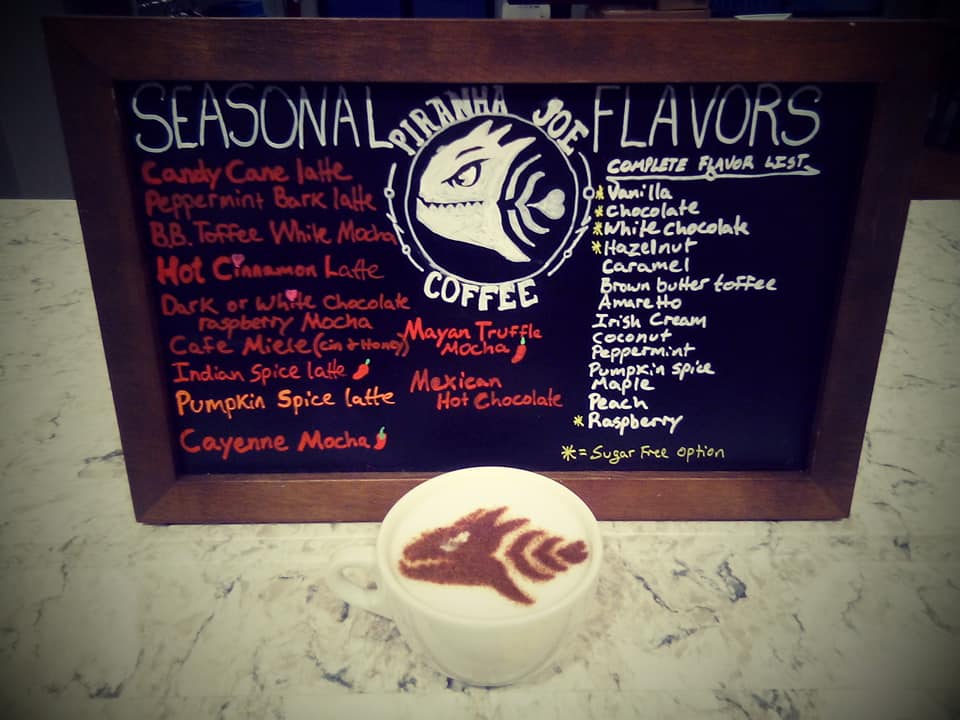 SEASONAL
PIRANHA JOE
COFFEE
FLAVORS
Candy Cane latte
Peppermint Bark latte
B.B. Toffee White Mocha
Hot Cinnamon Latte
Dark or White Chocolate
raspberry Mocha
Cafe Miele (cin & Honey)
Indian Spice latte
Pumpkin Spice latte
Cayenne Mocha
Mayan Truffle
Mocha
Mexican
Hot Chocolate
COMPLETE FLAVOR LIST
*Vanilla
*Chocolate
*White Chocolate
*Hazelnut
Caramel
Brown butter toffee
Amaretto
Irish Cream
Coconut
Peppermint
Pumpkin spice
Maple
Peach
*Raspberry
*= Sugar Free option